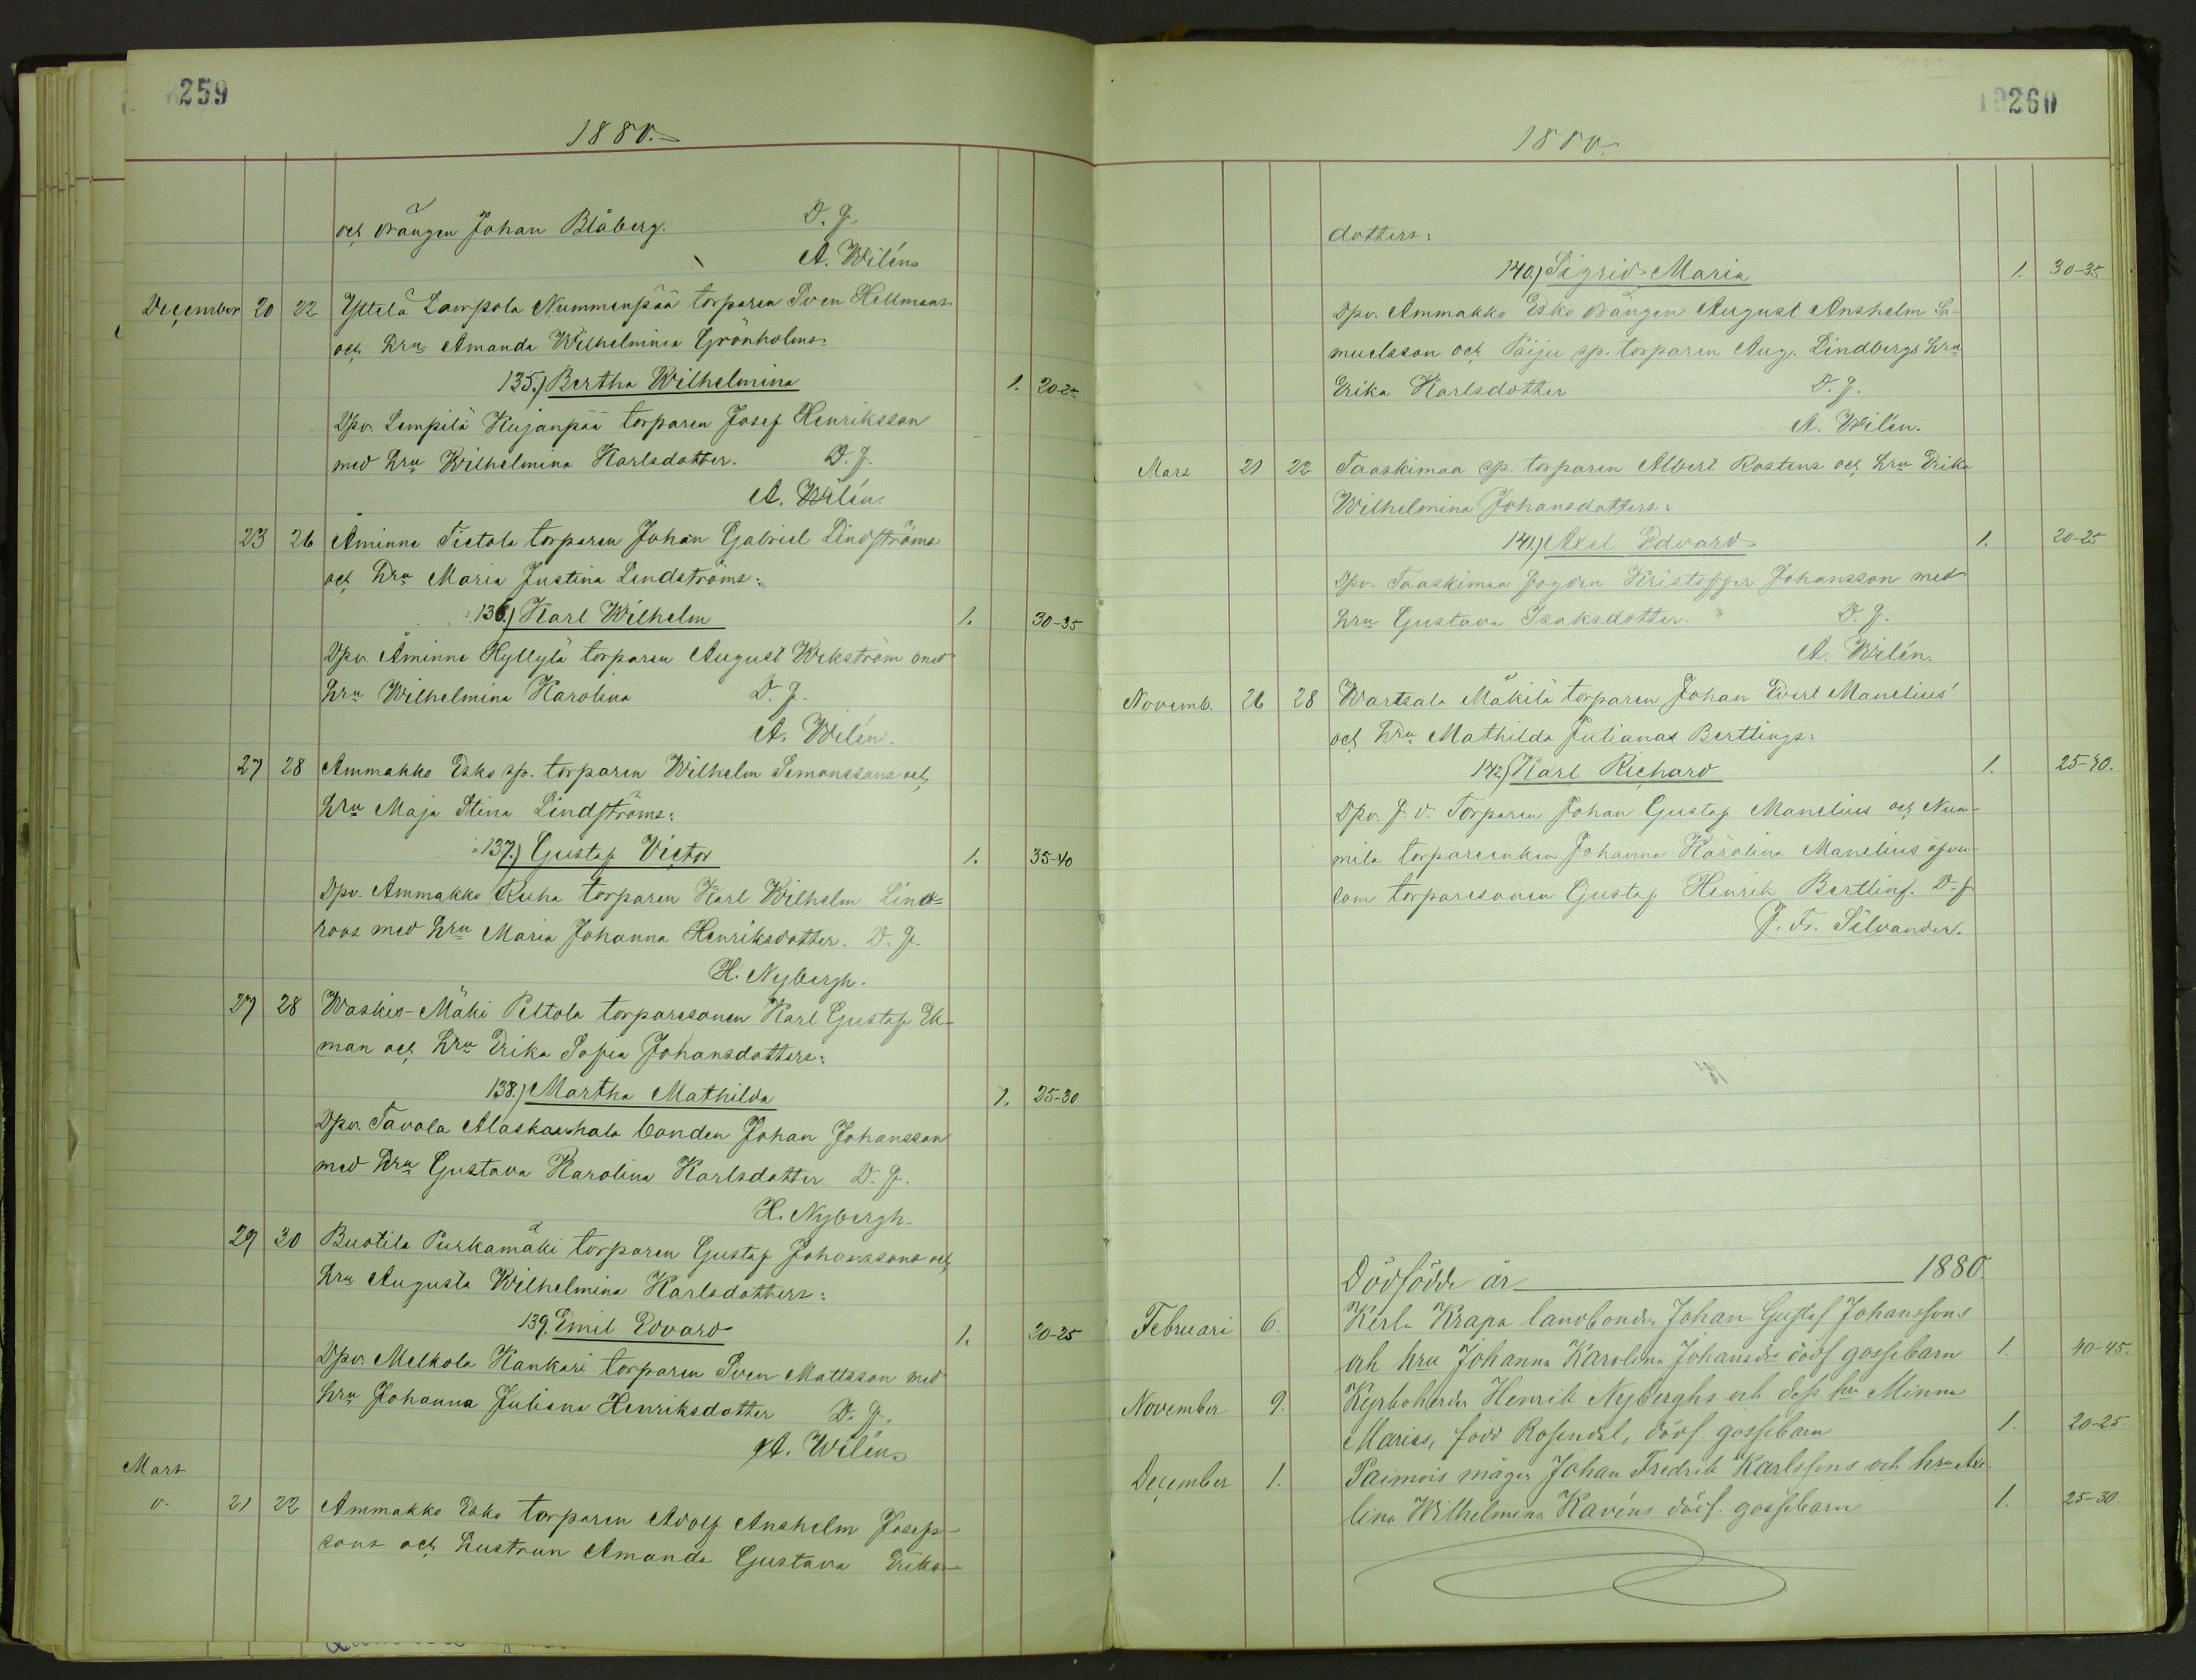 259
1880.
och drängen Johan Blåberg. D. f.
A. Wilén
December 20 22 Yttelä Lampola Nummenpää torparen Sven Hellmans
och hru Amanda Wilhelmina Grönholms:
135.) Bertha Wilhelmina 1. 20-25
Dpv. Lempilä Kujanpää torparen Josef Henriksson
med hru Wilhelmina Karlsdotter. D. f.
A. Wilén.
23 26 Åminne Tietola torparen Johan Gabriel Lindströms
och hru Maria Justina Lindströms:
136.) Karl Wilhelm 1. 30-35
Dpv. Åminne Hyllylä torparen August Wekström med
hru Wilhelmina Karolina D. f.
A. Wilén.
27 28 Ammakko Esko sp. torparen Wilhelm Simonssons och
hru Maja Stina Lindströms:
137.) Gustaf Victor 1. 35-40
Dpv. Ammakko Ruha torparen Karl Wilhelm Lind=
roos med hru Maria Johanna Henriksdotter. D. f.
H. Nybergh.
27 28 Waskis-Mäki Peltola torparesonen Karl Gustaf Ek-
man och hru Erika Sofia Johansdotters:
138.) Martha Mathilda 1. 25-30
Dpv. Tavola bonden Johan Johansson
med hru Gustava Karolina Karlsdotter D. f.
H. Nybergh.
29 30 Buotila Purkamäki torparen Gustaf Johanssons och
hru Augusta Wilhelmina Karlsdotters:
139. Emil Edvard 1. 20-25
Dpv. Melkola Kankari torparen Sven Mattsson med
hru Johanna Juliana Henriksdotter D. f.
A. Wilén
Mars
v. 21 22 Ammakko Esko torparen Adolf Anshelm Josefs-
sons och hustrun Amanda Gustava Eriks-
260
1880.
dotters:
140.) Sigrid Maria 1. 30-35
Dpv. Ammakko Esko drängen August Anshelm Sa-
muelsson och Päiju sp. torparen Aug. Lindbergs hru
Erika Karlsdotter D. f.
A. Wilén.
Mars 21 22 Taaskimaa sp. torparen Albert Rostens och hru Erika
Wilhelmina Johansdotters:
141.) Axel Edvard 1. 20-25
Dpv. Taaskimaa fogden Kristoffer Johansson med
hru Gustava Isaksdotter. D. f.
A. Wilén.
Novemb. 26 28 Wartsala Mäkilä torparen Johan Evert Manelius'
och hru Mathilda Julianas Bertlings:
142.) Karl Richard 1. 25-40.
Dpv. f. d. Torparen Johan Gustaf Manelius och Num-
mila torpareenkan Johanna Karolina Manelius äfven-
som torparesonen Gustaf Henrik Bertling. D. f
J. Fr. Sälvander.
Dödfödde år 1880.
Februari 6. Kirla Krapa landbonden Johan Gustaf Johanssons
och hru Johanna Karolina Johansdrs dödf gossebarn 1. 40-45.
November 9. Kyrkoherden Henrik Nyberghs och dess hru Minna
Marias, född Rosendal, dödf gossebarn 1. 20-25
December 1. Paimois måger Johan Fredrik Karlssons och hru Ade-
lina Wilhelmina Kavéns dödf. gossebarn 1. 25-30